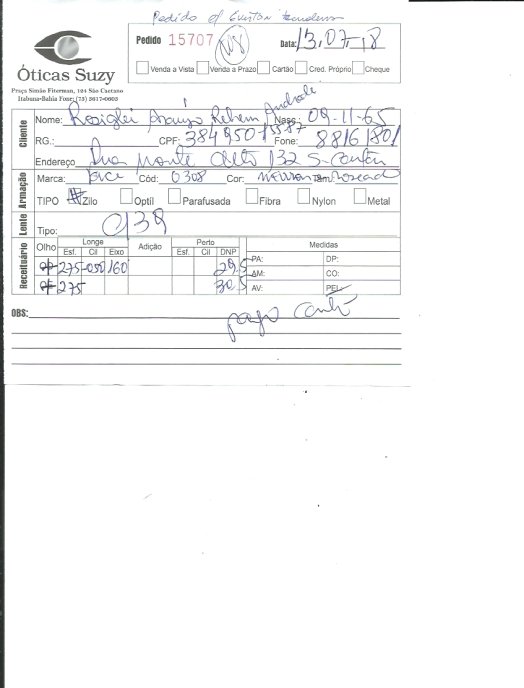 Pedido p/ Everton
Óticas Suzy
Praça Simão Fiterman, 124 São Caetano
Itabuna-Bahia Fone: (73) 3617-0603
Pedido 15707 Data: 13,07,18
Venda a Vista Venda a Prazo Cartão Cred. Próprio Cheque
Cliente
Nome: Araujo Rehem Andrade Nasc.: 09-11-65
RG.: CPF: Fone: 88161801
Endereço Rua Monte Alto 132 S-Caetan
Armação
Marca: Cód: 0308 Cor: Tam.:
TIPO Zilo Optil Parafusada Fibra Nylon Metal
Lente
Tipo:
Receituário
Olho Longe Adição Perto Medidas
Esf. Cil Eixo Esf. Cil DNP
275-050 160 29,5 PA: DP:
275 30,5 AM: CO:
AV: PEL:
OBS: